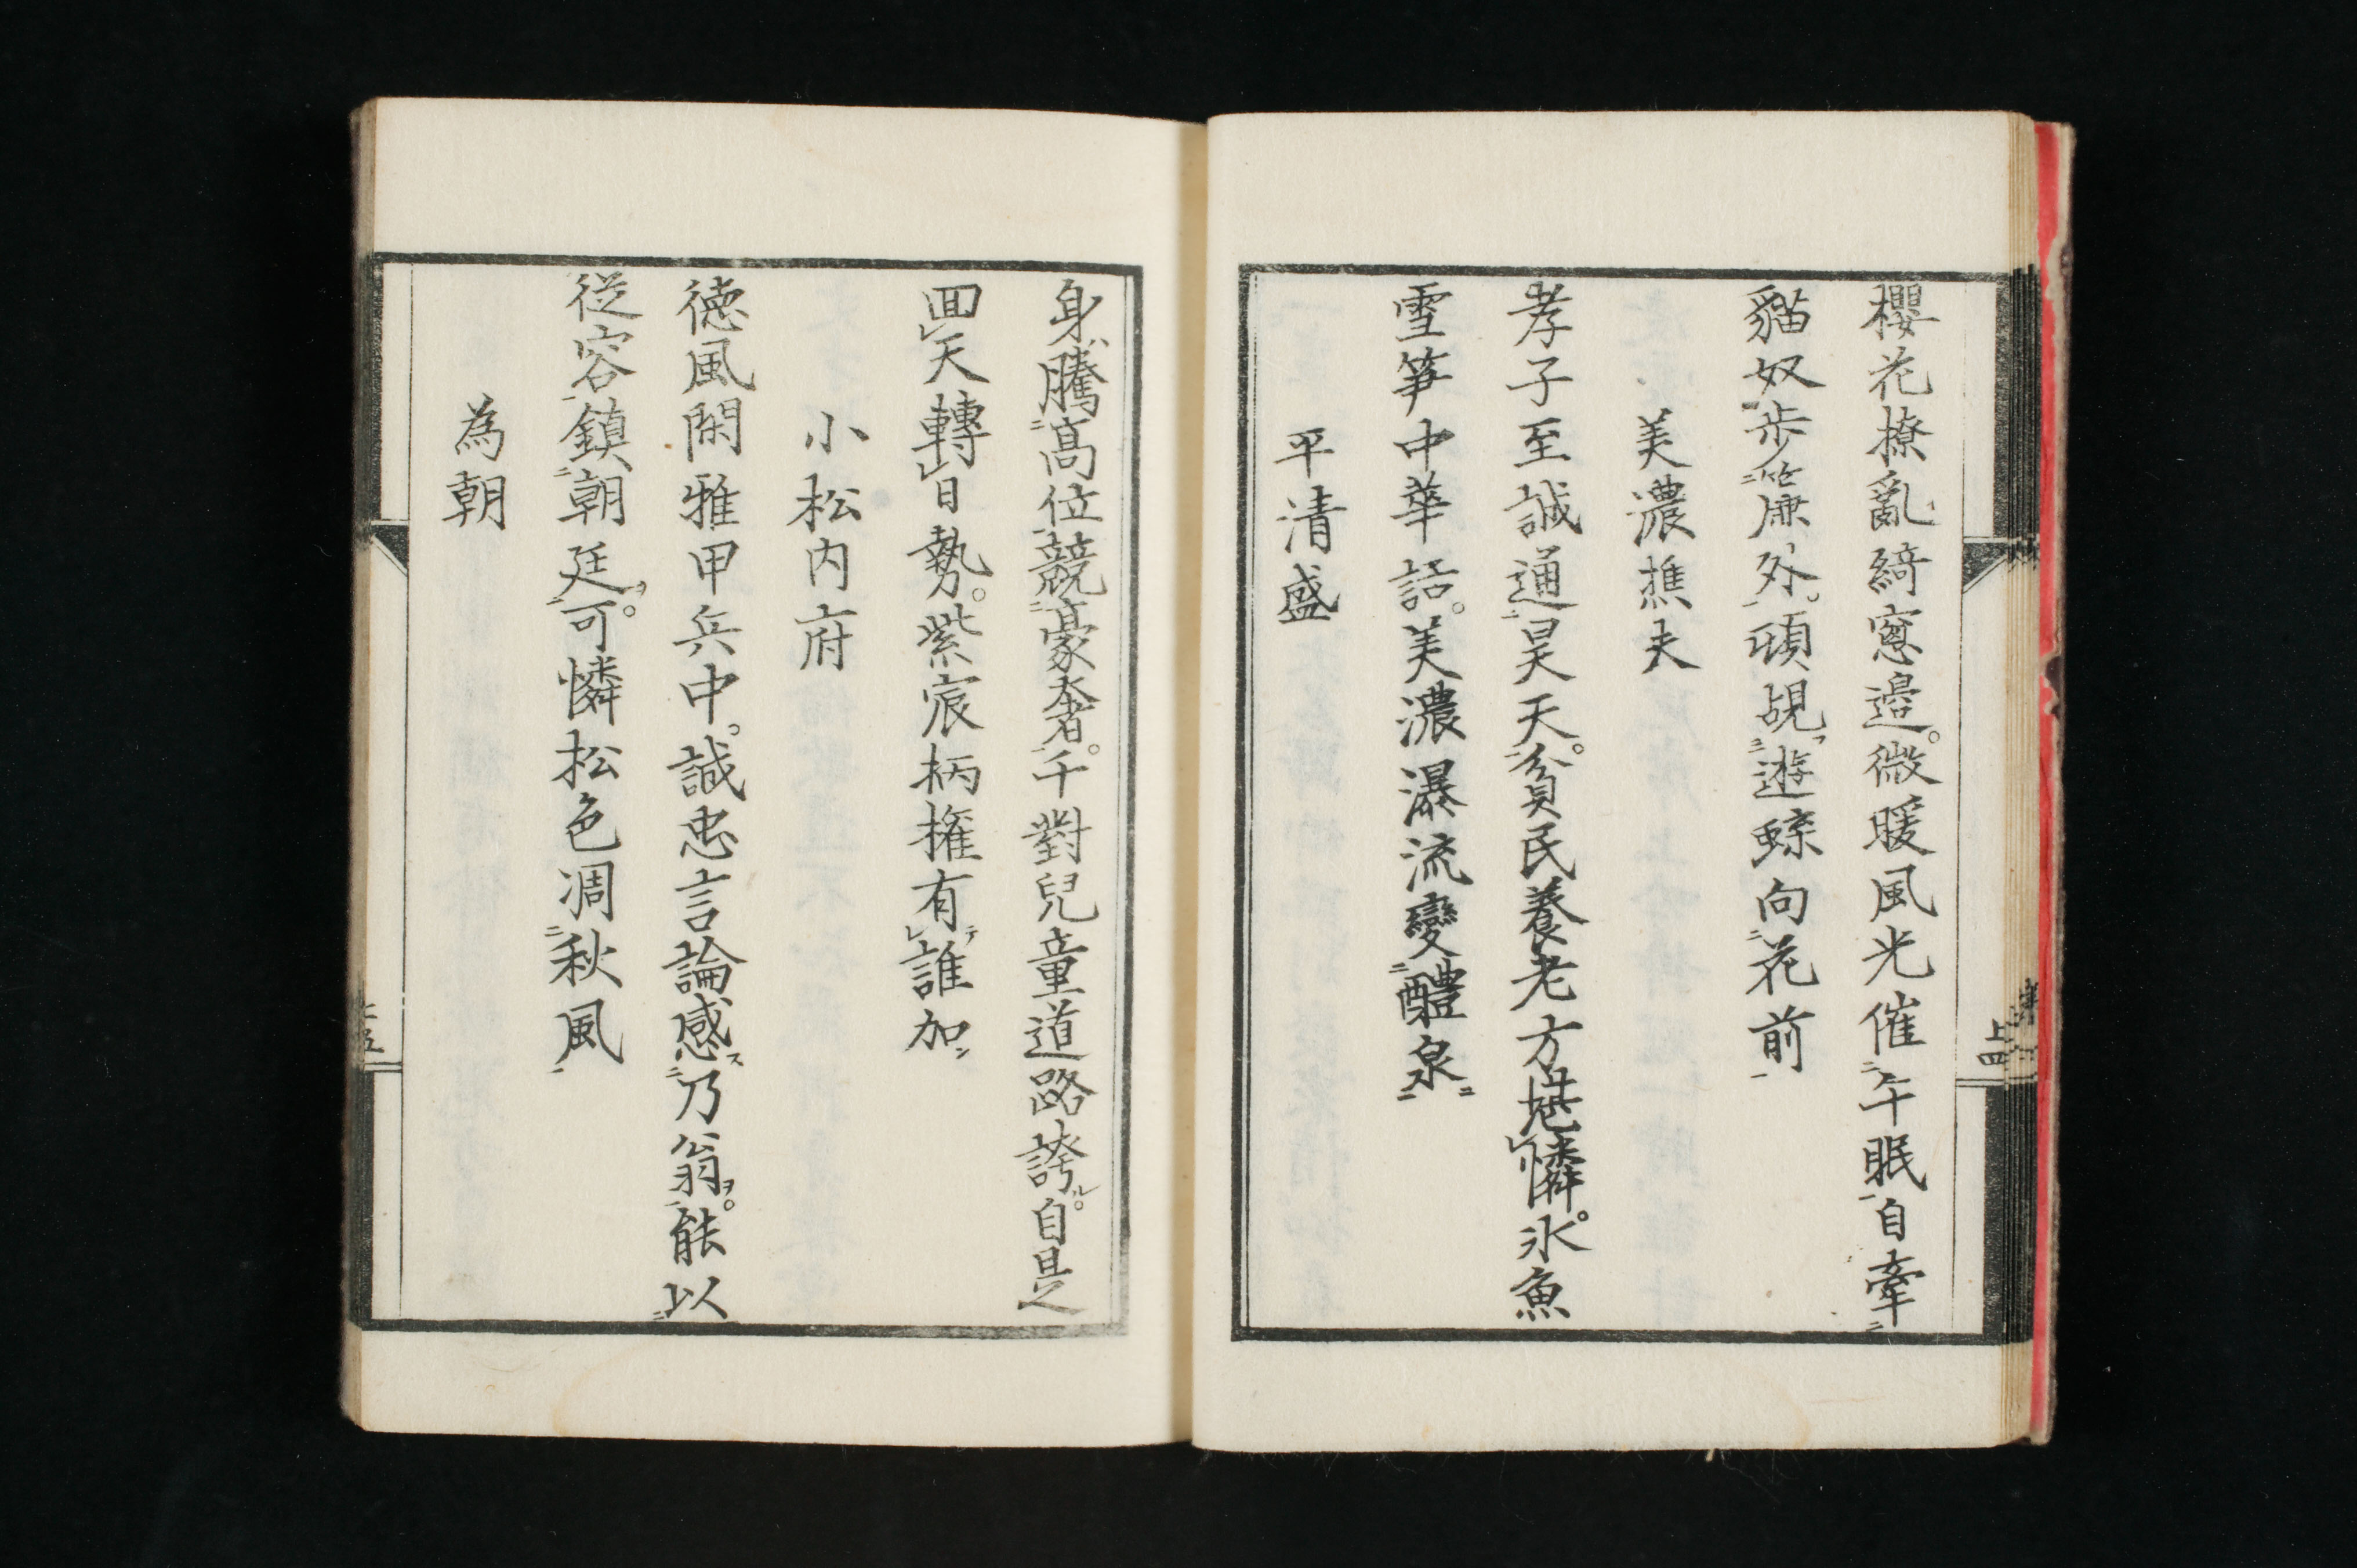 櫻花撩亂綺窓邉。微暖風光催午眠自牽
貓奴歩簾外。頭覘遊蝶向花前
美濃樵夫
孝子至誠通昊天。貧民養老方堪憐。氷魚
雪笋中華話。美濃瀑流變醴泉
平清盛
身騰高位競豪奢。千對兒童道路誇。自是
回天轉日勢。紫宸柄擁有誰加
小松内府
徳風閑雅甲兵中。誠忠言論感乃翁。能以
従容鎮朝廷。可憐松色凋秋風
為朝
上四